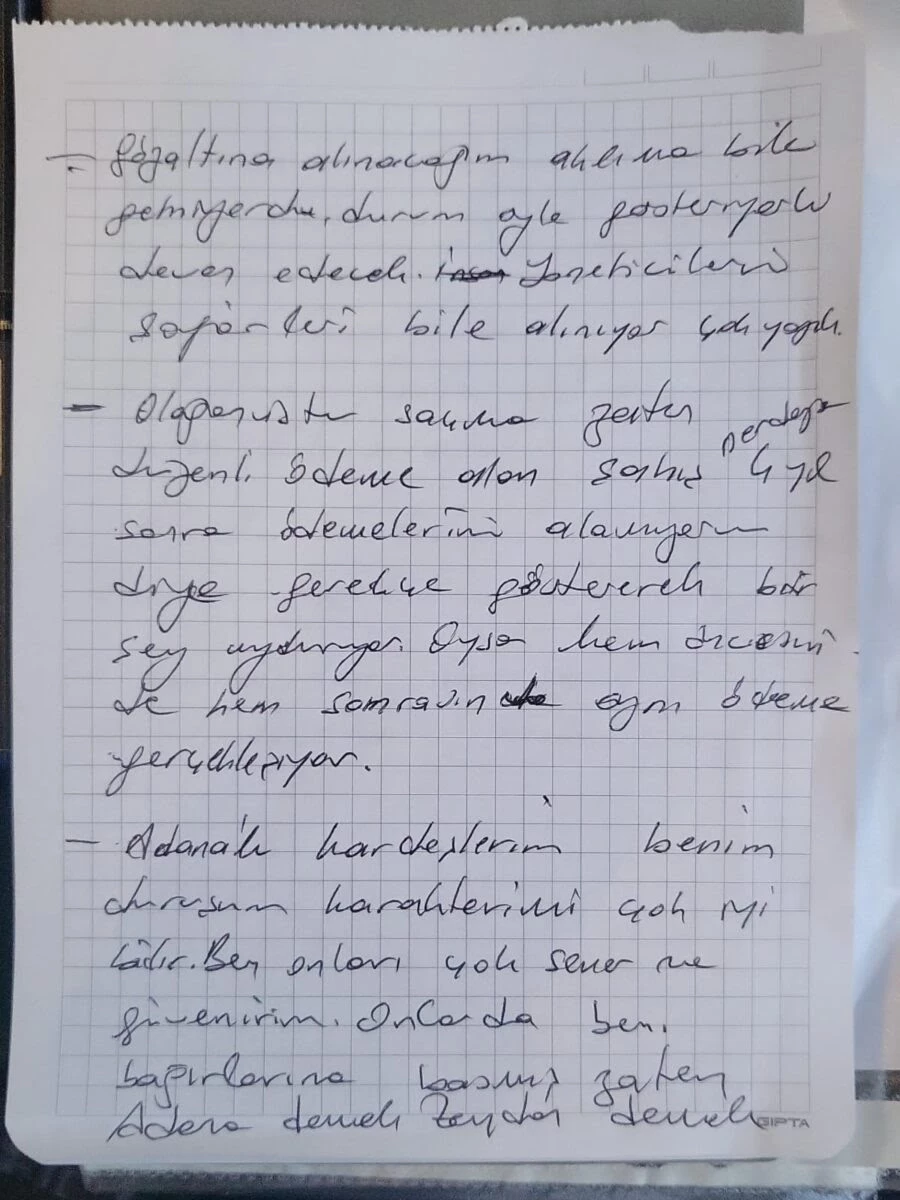 — Gözaltına alınacağım aklıma bile
gelmiyordu, durum öyle gösteriyorki
devam edecek. Yöneticilerin
şoförleri bile alınıyor çok yazık.
— Olağanüstü saçma zaten
düzenli ödeme alan şahıs nerdeyse 4 yıl
sonra ödemelerimi alamıyorum
diye gerekçe göstererek bir
şey uyduruyor. Oysa hem öncesini
de hem sonrasın aynı ödeme
gerçekleşiyor.
— Adanalı kardeşlerim benim
duruşum karakterimi çok iyi
bilir. Ben onları çok sever ve
güvenirim. Onlarda beni
bağırlarına basmış zaten
Adana demek Zeydan demek
GIPTA